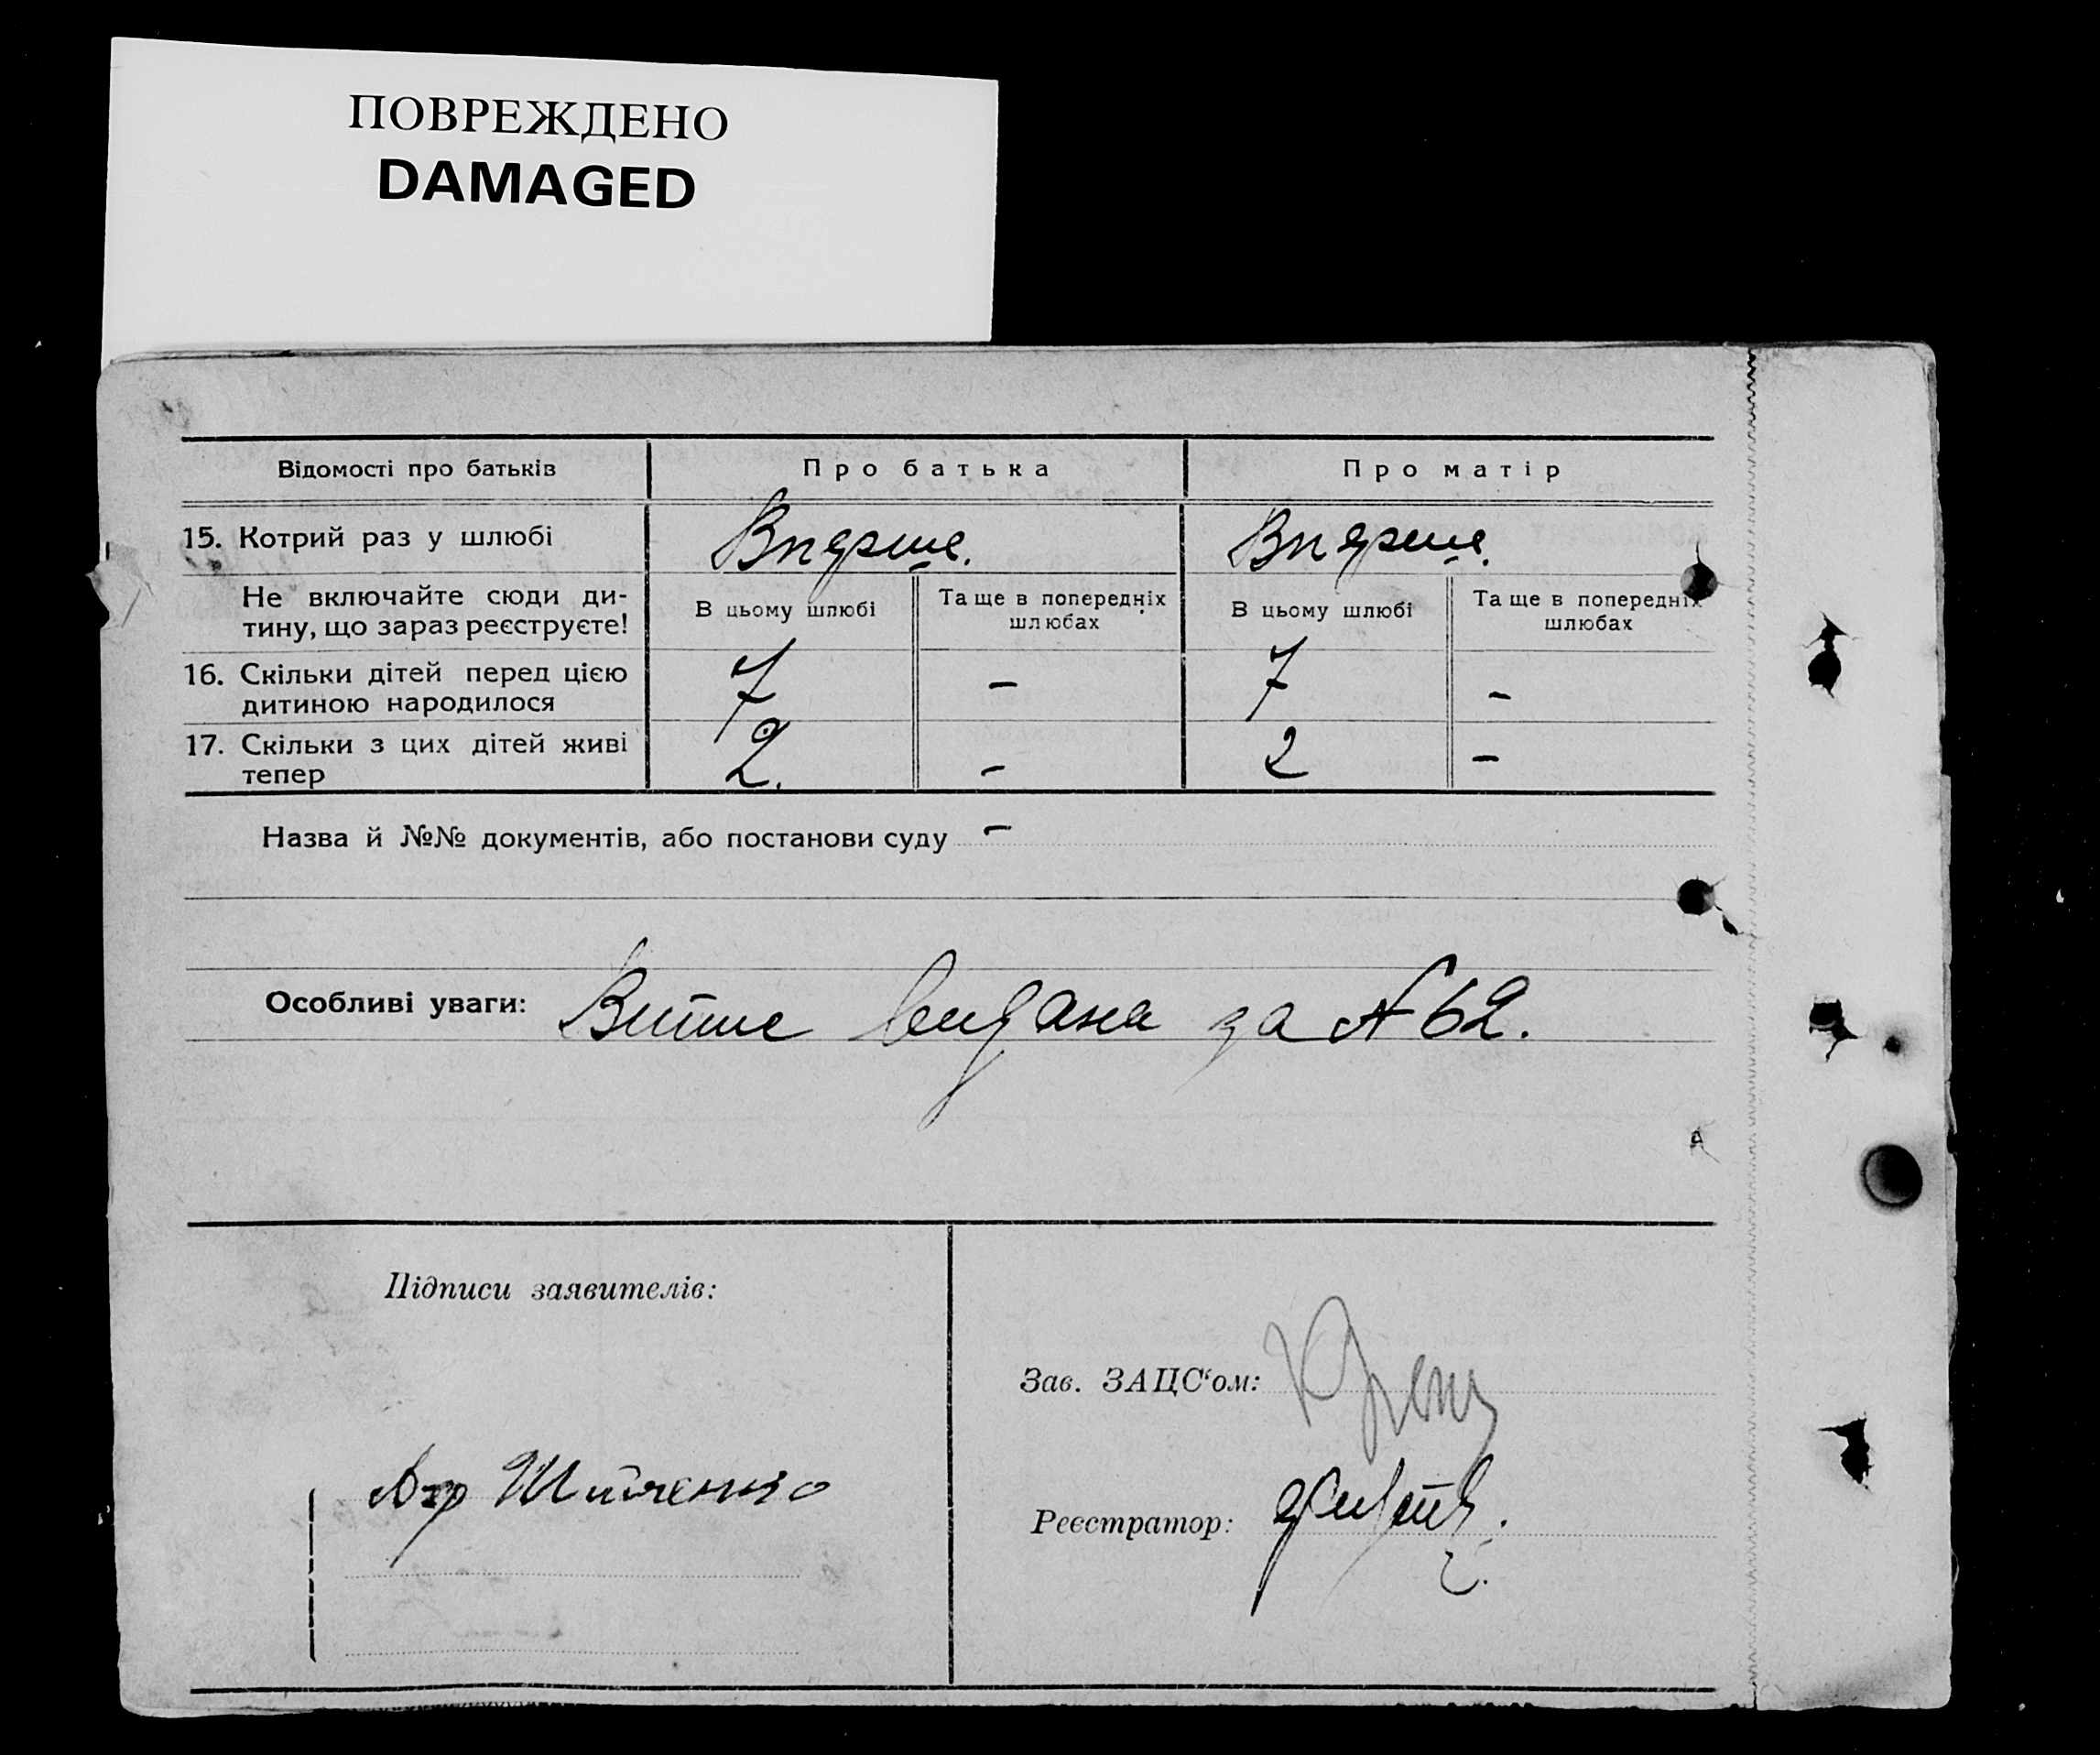 ПОВРЕЖДЕНО
DAMAGED
Відомості про батьків
Про батька
Про матір
15. Котрий раз у шлюбі
Вперше.
Вперше.
Не включайте сюди ди-
тину, що зараз реєструєте!
В цьому шлюбі
Та ще в попередніх
шлюбах
В цьому шлюбі
Та ще в попередніх
шлюбах
16. Скільки дітей перед цією
дитиною народилося
7
–
7
–
17. Скільки з цих дітей живі
тепер
2.
–
2
–
Назва й №№ документів, або постанови суду –
Особливі уваги: видана за № 62.
Підписи заявителів:
Зав. ЗАЦС‘ом:
Реєстратор: